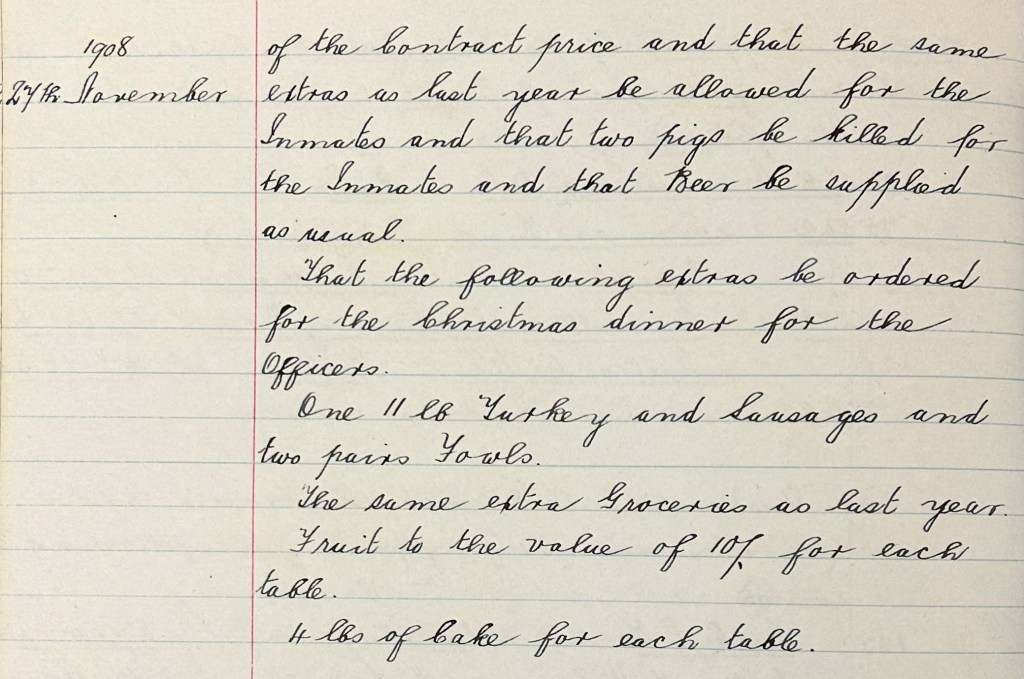 1908
27th November
of the Contract price and that the same
extras as last year be allowed for the
Inmates and that two pigs be killed for
the Inmates and that Beer be supplied
as usual.
That the following extras be ordered
for the Christmas dinner for the
Officers.
One 11 lb Turkey and Sausages and
two pairs Fowls.
The same extra Groceries as last year.
Fruit to the value of 10/ for each
table.
4 lbs of Cake for each table.